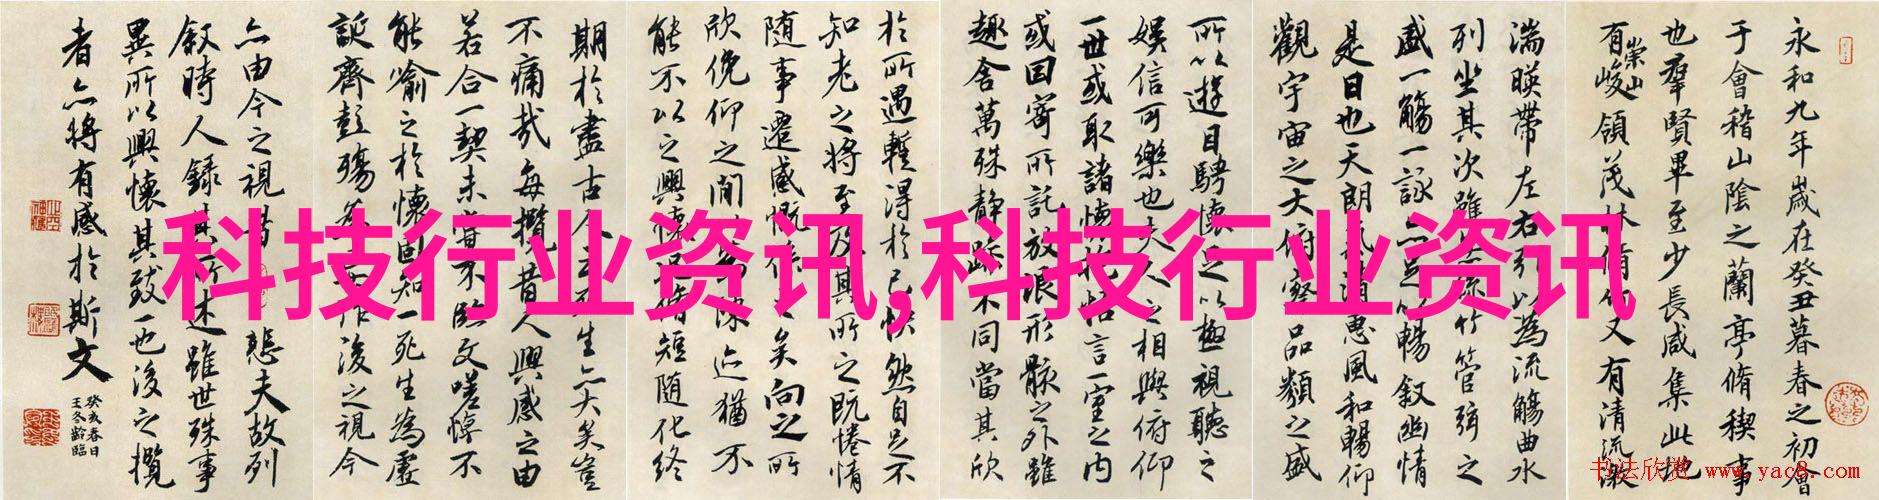 永和九年歲在癸丑暮春之初會
于會稽山陰之蘭亭脩稧事
也羣賢畢至少長咸集此地
有崇山峻領茂林脩竹又有清流激
湍暎帶左右引以為流觴曲水
列坐其次雖無絲竹管弦之
盛一觴一詠亦足以暢敘幽情
是日也天朗氣清惠風和暢仰
觀宇宙之大俯察品類之盛
所以遊目騁懷足以極視聽之
娛信可樂也夫人之相與俯仰
一世或取諸懷抱悟言一室之內
或因寄所託放浪形骸之外雖
趣舍萬殊靜躁不同當其欣
於所遇蹔得於己快然自足不
知老之將至及其所之既惓情
随事遷感慨係之矣向之所
欣俛仰之間以為陳迹猶不
能不以之興懷況脩短随化終
期於盡古人云死生亦大矣豈
不痛哉每攬昔人興感之由
若合一契未嘗不臨文嗟悼不
能喻之於懷固知一死生為虛
誕齊彭殤為妄作後之視今
亦由今之視昔悲夫故列
敘時人錄其所述雖世殊事
異所以興懷其致一也後之攬
者亦將有感於斯文
癸亥春日
王冬齡臨
科技行业资讯,科技行业资讯
书法欣赏 www.yac8.com